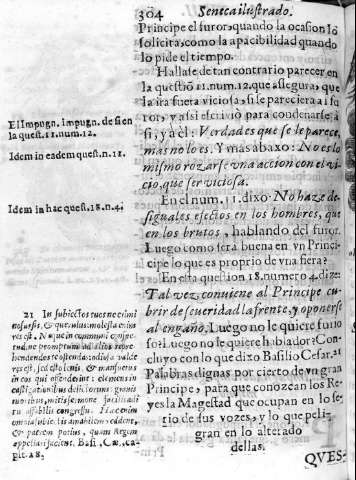 304 Seneca ilustrado.
Principe el furor, quando la ocasion lo
solicita, como la apacibilidad quando
lo pide el tiempo.
Hallase de tan contrario parecer en
la questiõ 11. num. 12. que assegura, que
la ira fuera viciosa, si le pareciera al fu
ror, y assi escrivio para condenarse à
si, y à el: Verdad es que se le parece,
mas no lo es. Y mas abaxo: No es lo
mismo rozarse vna accion con el vi
cio, que ser viciosa.
En el num. 11. dixo: No haze de-
siguales efectos en los hombres, que
en los brutos, hablando del furor.
Luego como serà buena en vn Princi-
pe lo que es proprio de vna fiera?
En esta question 18. numero 4. dize:
Tal vez conviene al Principe cu-
brir de severidad la frente, y oponerse
al engaño. Luego no le quiere furio
so? Luego no le quiere hablador? Con-
cluyo con lo que dixo Basilio Cesar. 21
Palabras dignas por cierto de vn gran
Principe, para que conozcan los Re-
yes la Magestad que ocupan en lo se-
rio de sus vozes, y lo que peli-
gran en lo alterado
dellas.
QVES-
El Impugn. Impugn. de si en
la quest. 11. num. 12.
Idem in eadem quest. n. 11.
Idem in hac quest. 18. n. 4.
21 In subiectos tuos ne crimi
nosus sis, &
res est. Neque in communi conspec-
tu
hendendo te ostendas: odiosa valde
res est, sed esto lenis, & mansuetus
in eos qui offenderint: clemens in
castigationibus delictorum: gravi
moribus, mitis sermone, facilis adi
tu affabilis congressu. Hac enim
omnia subiectis amabilem reddent,
& patrem potius, quam Regem
appellari facient. Basi. Cæs. ca-
pit. 28.